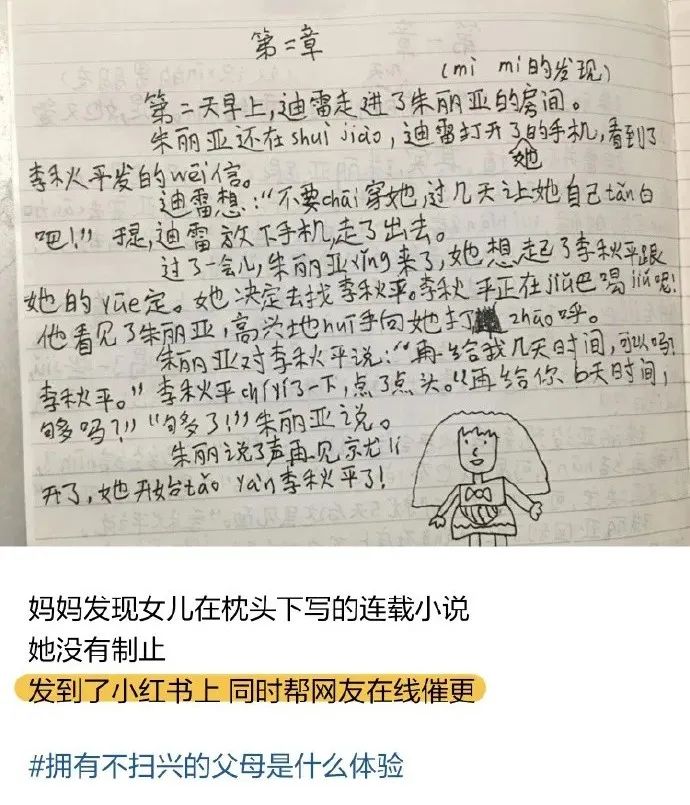 第二章
(mì mì的发现)
第二天早上，迪雷走进了朱丽亚的房间。
朱丽亚还在shuì jiào，迪雷打开了她的手机，看到了
李秋平发的wēi信。
迪雷想：“不要chāi穿她，过几天让她自己tǎn白
吧！”于是，迪雷放下手机，走了出去。
过了一会儿，朱丽亚xǐng来了，她想起了李秋平跟
她的yūe定。她决定去找李秋平。李秋平正在jiǔ巴喝jiǔ呢！
他看见了朱丽亚，高兴地huī手向她打zhāo呼。
朱丽亚对李秋平说：“再给我几天时间，可以吗？
李秋平。”李秋平chí yí了一下，点了点头。“再给你6天时间，
够吗？！”“够了！！”朱丽亚说。
朱丽说了声再见京尤lí
开了，她开始tǎo yàn李秋平了！
妈妈发现女儿在枕头下写的连载小说
她没有制止
发到了小红书上 同时帮网友在线催更
#拥有不扫兴的父母是什么体验